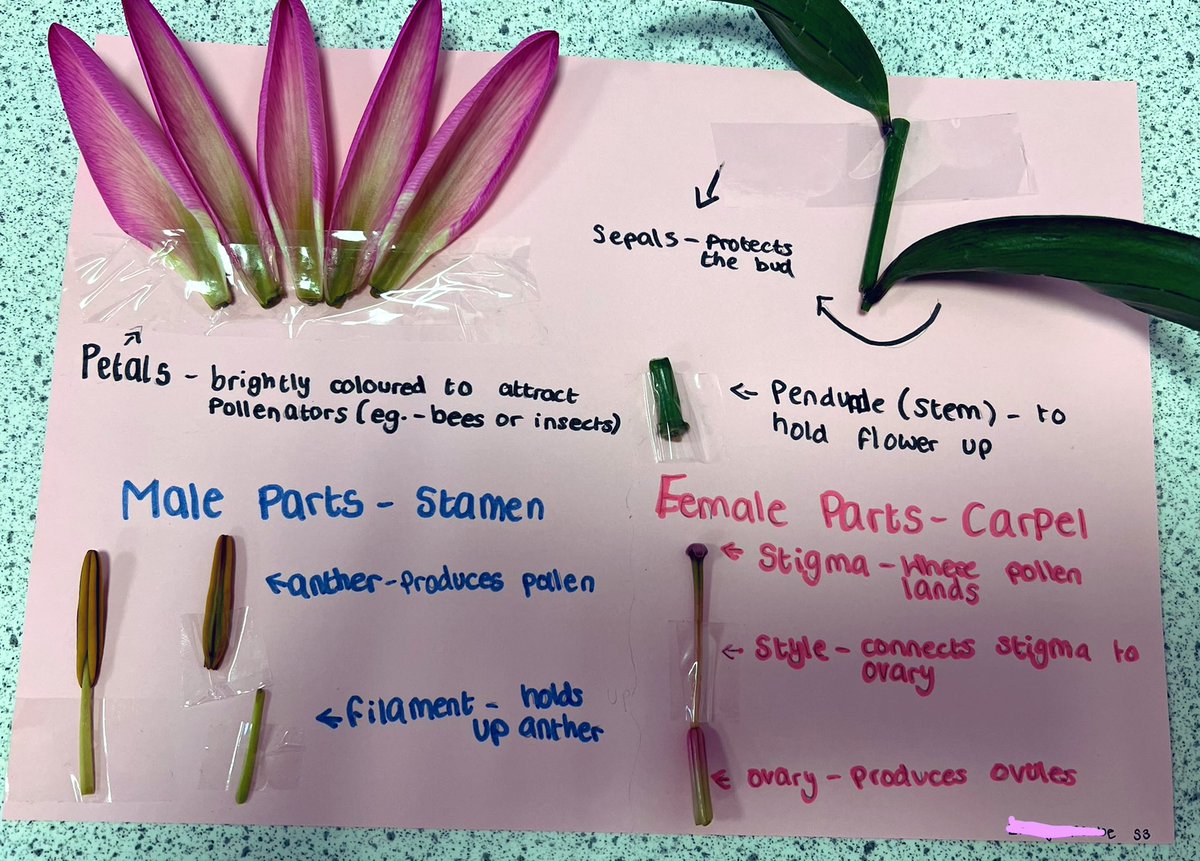 Sepals - protects
the bud
Petals - brightly coloured to attract
pollenators (eg. - bees or insects)
(stem) - to
hold flower up
Male Parts - Stamen
anther - produces pollen
filament - holds
up anther
Female Parts - Carpel
Stigma - where pollen
lands
Style - connects stigma to
ovary
ovary - produces ovules
S3